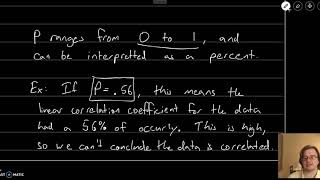 P ranges from 0 to 1, and
can be interpretted as a percent.
Ex: If P = .56, this means the
linear correlation coefficient for the data
had a 56% of occurly. This is high,
so we can't conclude the data is correlated.